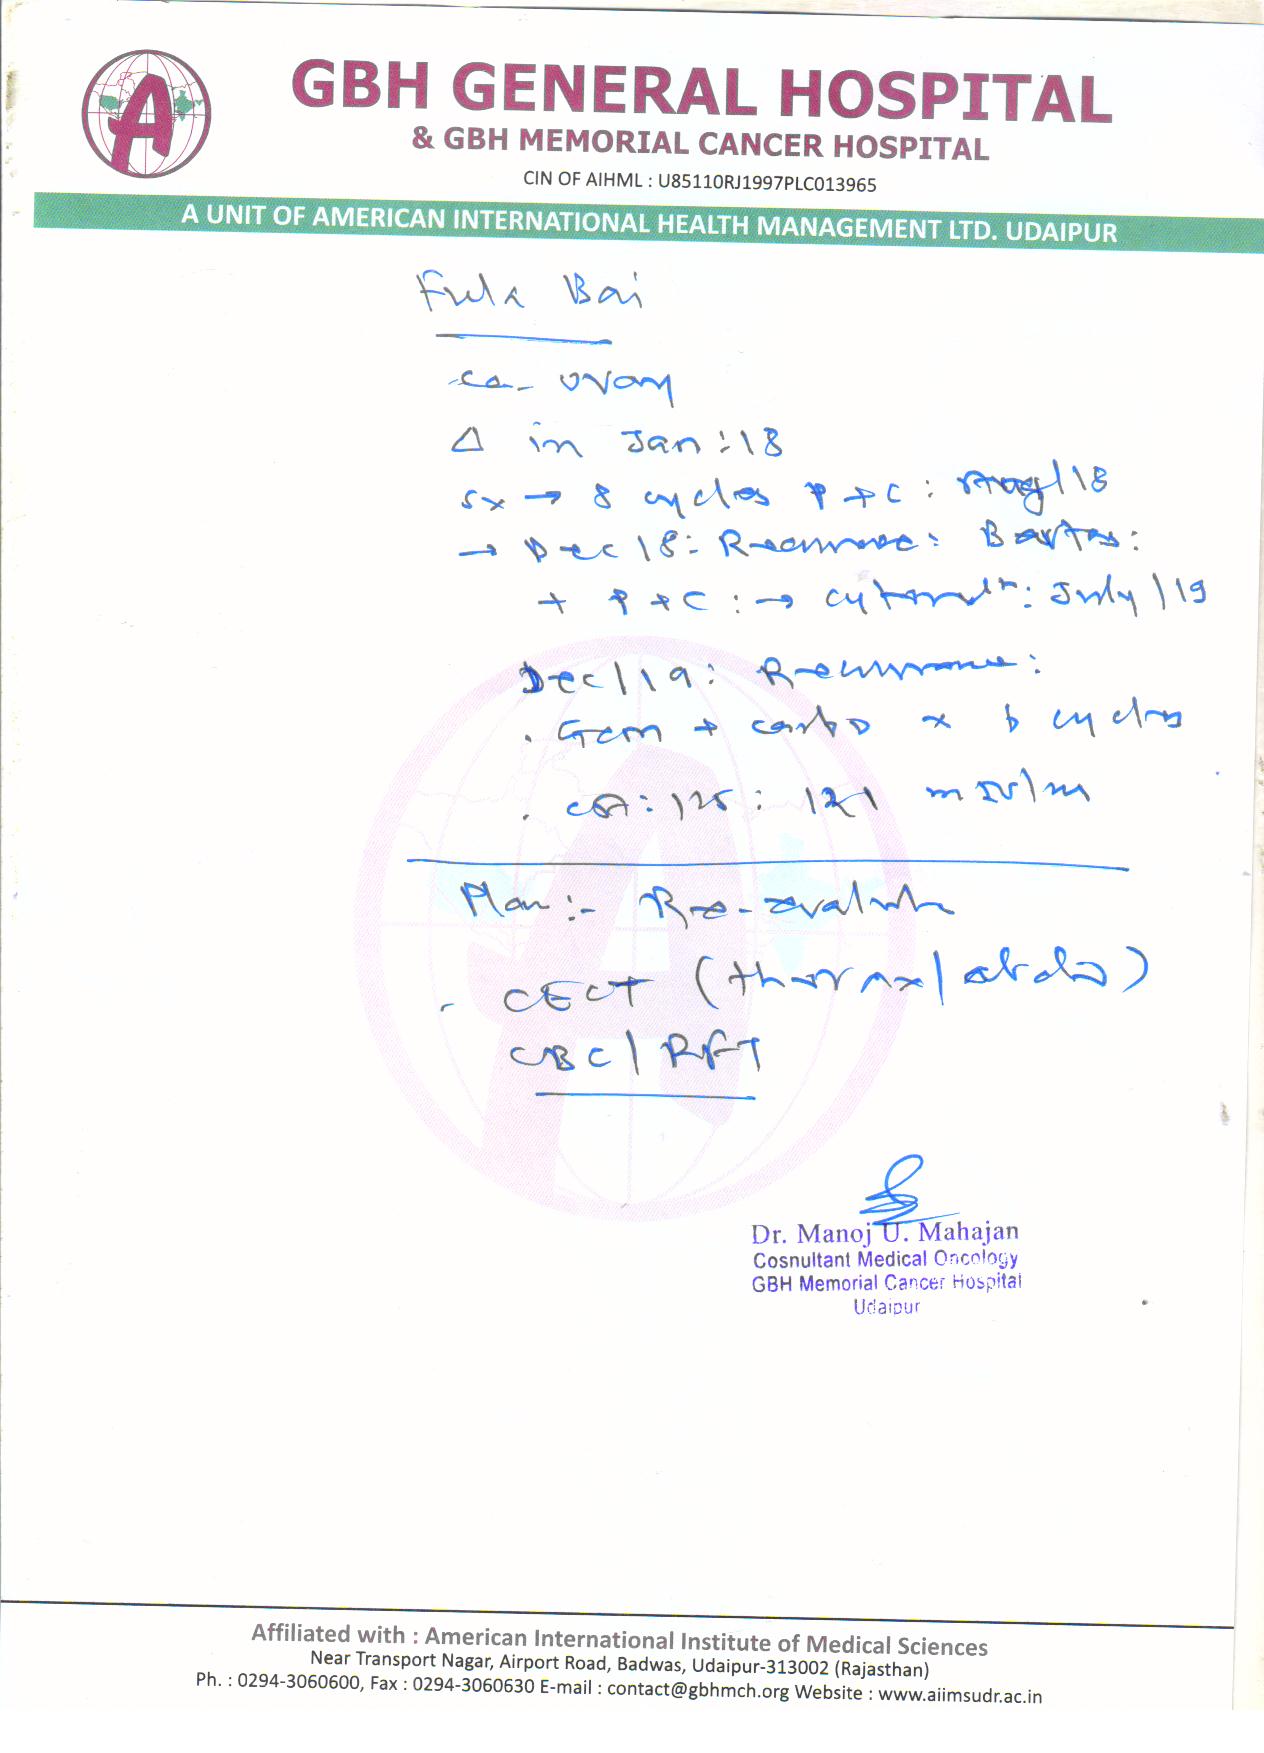 GBH GENERAL HOSPITAL
& GBH MEMORIAL CANCER HOSPITAL
CIN OF AIHML : U85110RJ1997PLC013965
A UNIT OF AMERICAN INTERNATIONAL HEALTH MANAGEMENT LTD. UDAIPUR
Fula Bai
Ca- ovary
Δ in Jan:18
Sx → 8 cycles P + C : Aug/18
→ Dec 18: Recurrence:
+ P + C : → : July/19
Dec/19: Recurrence:
. Gem + carbo x 6 cycles
. CA:125: 121 mIU/m
Plan:- Re-evaluate
- CECT (thorax/abdo)
CBC/RFT
Dr. Manoj U. Mahajan
Cosnultant Medical Oncology
GBH Memorial Cancer Hospital
Udaipur
Affiliated with : American International Institute of Medical Sciences
Near Transport Nagar, Airport Road, Badwas, Udaipur-313002 (Rajasthan)
Ph. : 0294-3060600, Fax : 0294-3060630 E-mail : contact@gbhmch.org Website : www.aiimsudr.ac.in